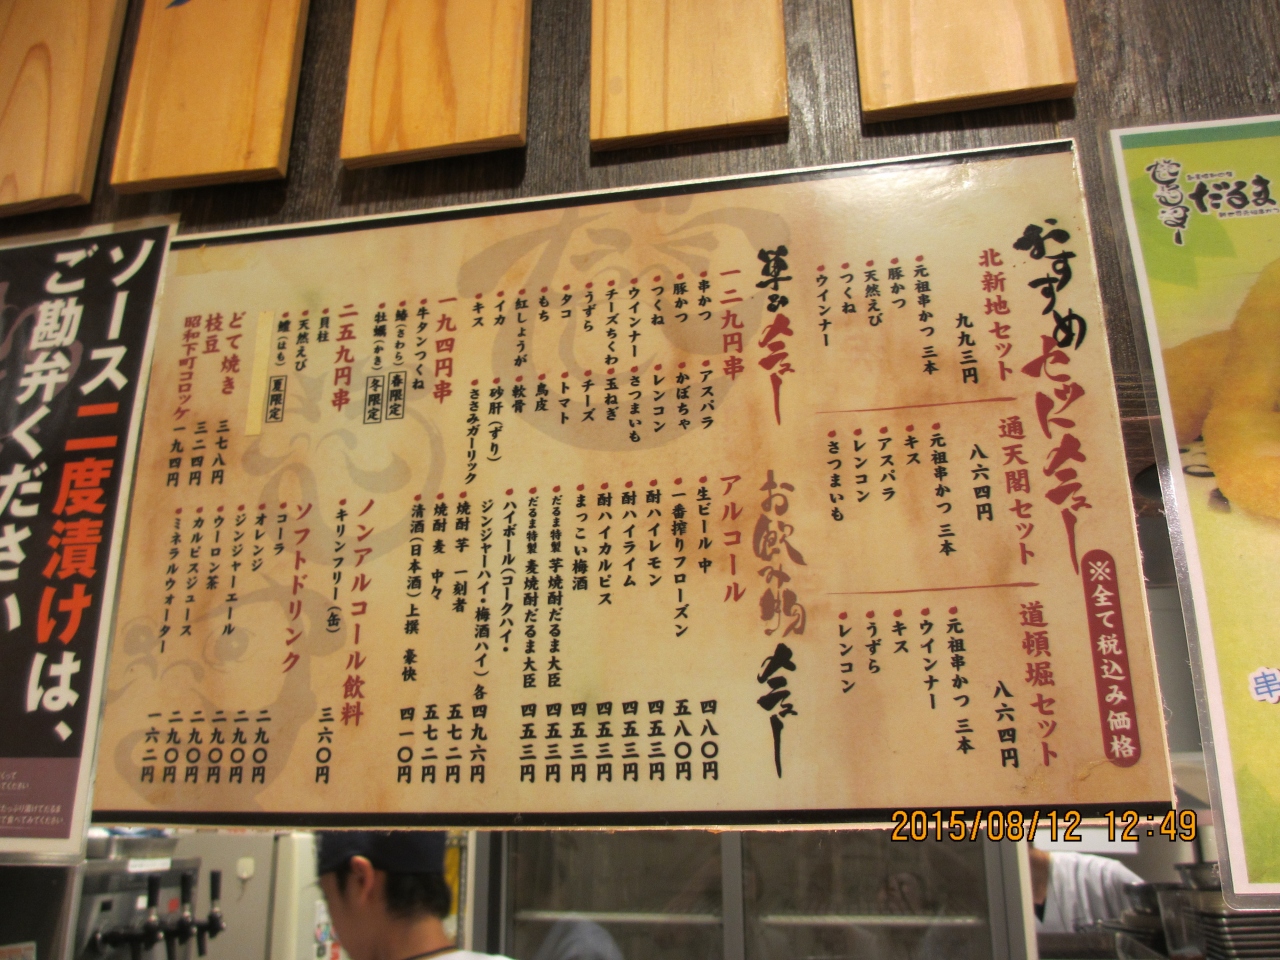 おすすめセットメニュー
※全て税込み価格
北新地セット
九九三円
元祖串かつ 三本
豚かつ
天然えび
つくね
ウインナー
通天閣セット
八六四円
元祖串かつ 三本
キス
アスパラ
レンコン
さつまいも
道頓堀セット
八六四円
元祖串かつ 三本
ウインナー
キス
うずら
レンコン
単品メニュー
一二九円串
串かつ
豚かつ
つくね
ウインナー
チーズちくわ
うずら
タコ
もち
紅しょうが
イカ
キス
アスパラ
かぼちゃ
レンコン
さつまいも
玉ねぎ
チーズ
トマト
鳥皮
軟骨
砂肝(ずり)
ささみガーリック
一九四円串
牛タンつくね
鰆(さわら) 春限定
牡蠣(かき) 冬限定
二五九円串
貝柱
天然えび
鱧(はも) 夏限定
どて焼き 三七八円
枝豆 三二四円
昭和下町コロッケ 一九四円
お飲み物メニュー
アルコール
生ビール 中 四八〇円
一番搾りフローズン 五八〇円
酎ハイレモン 四五三円
酎ハイライム 四五三円
酎ハイカルピス 四五三円
まっこい梅酒 四五三円
だるま特製 芋焼酎だるま大臣 四五三円
だるま特製 麦焼酎だるま大臣 四五三円
ハイボール(コークハイ・
ジンジャーハイ・梅酒ハイ) 各 四九六円
焼酎 芋 一刻者 五七二円
焼酎 麦 中々 五七二円
清酒(日本酒) 上撰 豪快 四一〇円
ノンアルコール飲料
キリンフリー(缶) 三六〇円
ソフトドリンク
コーラ 二九〇円
オレンジ 二九〇円
ジンジャーエール 二九〇円
ウーロン茶 二九〇円
カルピスジュース 二九〇円
ミネラルウォーター 一六二円
ソース二度漬けは、
ご勘弁ください
だるま
串
2015/08/12 12:49